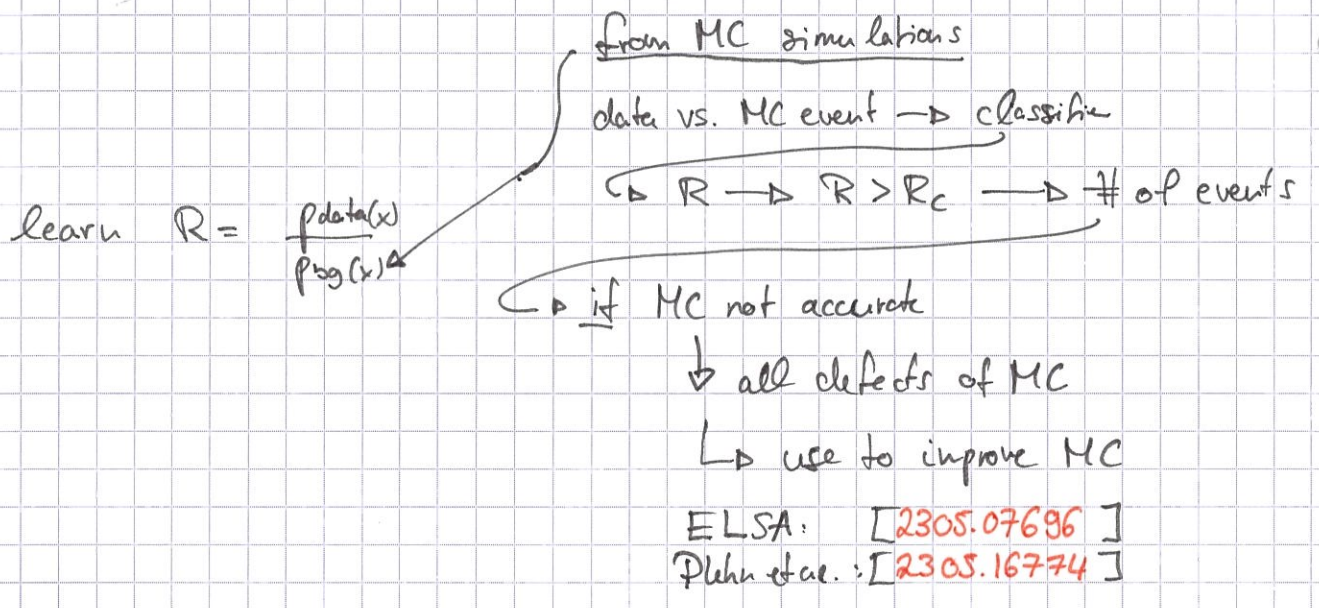 from MC simulations
data vs. MC event → classifie
↪ R → R > R_C → # of events
learn R = pdata(x) / pbg(x)
↪ if MC not accurate
↓ all defects of MC
↳ use to improve MC
ELSA: [2305.07696]
Plehn et al.: [2305.16774]